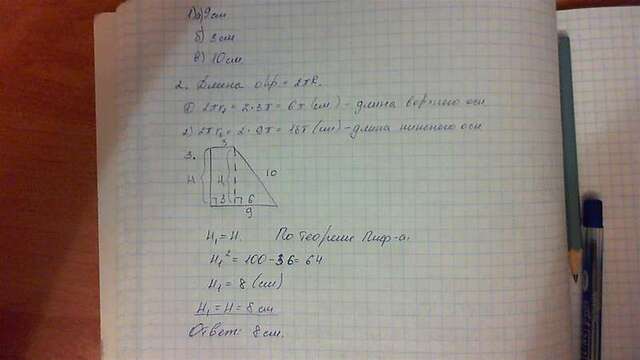 1) а) 9 см
б) 3 см
в) 10 см
2. Длина окр = 2πR.
1) 2πr₁ = 2·3π = 6π (см) - длина верхнего осн
2) 2πr₂ = 2·9π = 18π (см) - длина нижнего осн
3.
3
H H₁ 10
3 6
9
H₁ = H. По теореме Пиф-а:
H₁² = 100 - 36 = 64
H₁ = 8 (см)
H₁ = H = 8 см
Ответ: 8 см.